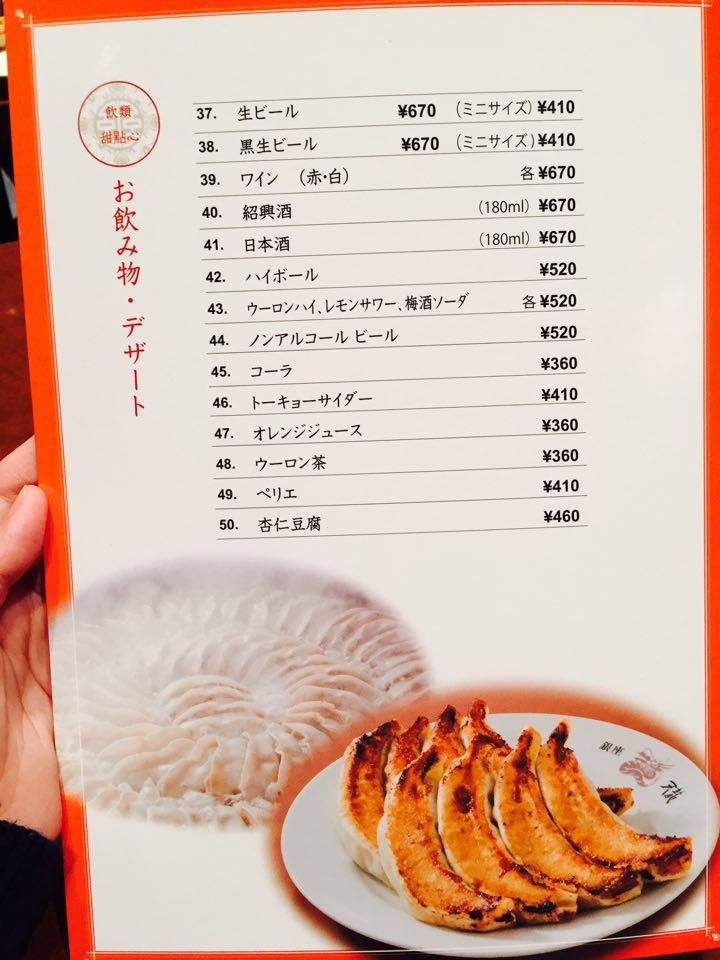 飲類
甜點心
お飲み物・デザート
37. 生ビール ¥670 (ミニサイズ) ¥410
38. 黒生ビール ¥670 (ミニサイズ) ¥410
39. ワイン (赤・白) 各 ¥670
40. 紹興酒 (180ml) ¥670
41. 日本酒 (180ml) ¥670
42. ハイボール ¥520
43. ウーロンハイ、レモンサワー、梅酒ソーダ 各 ¥520
44. ノンアルコール ビール ¥520
45. コーラ ¥360
46. トーキョーサイダー ¥410
47. オレンジジュース ¥360
48. ウーロン茶 ¥360
49. ペリエ ¥410
50. 杏仁豆腐 ¥460
銀座